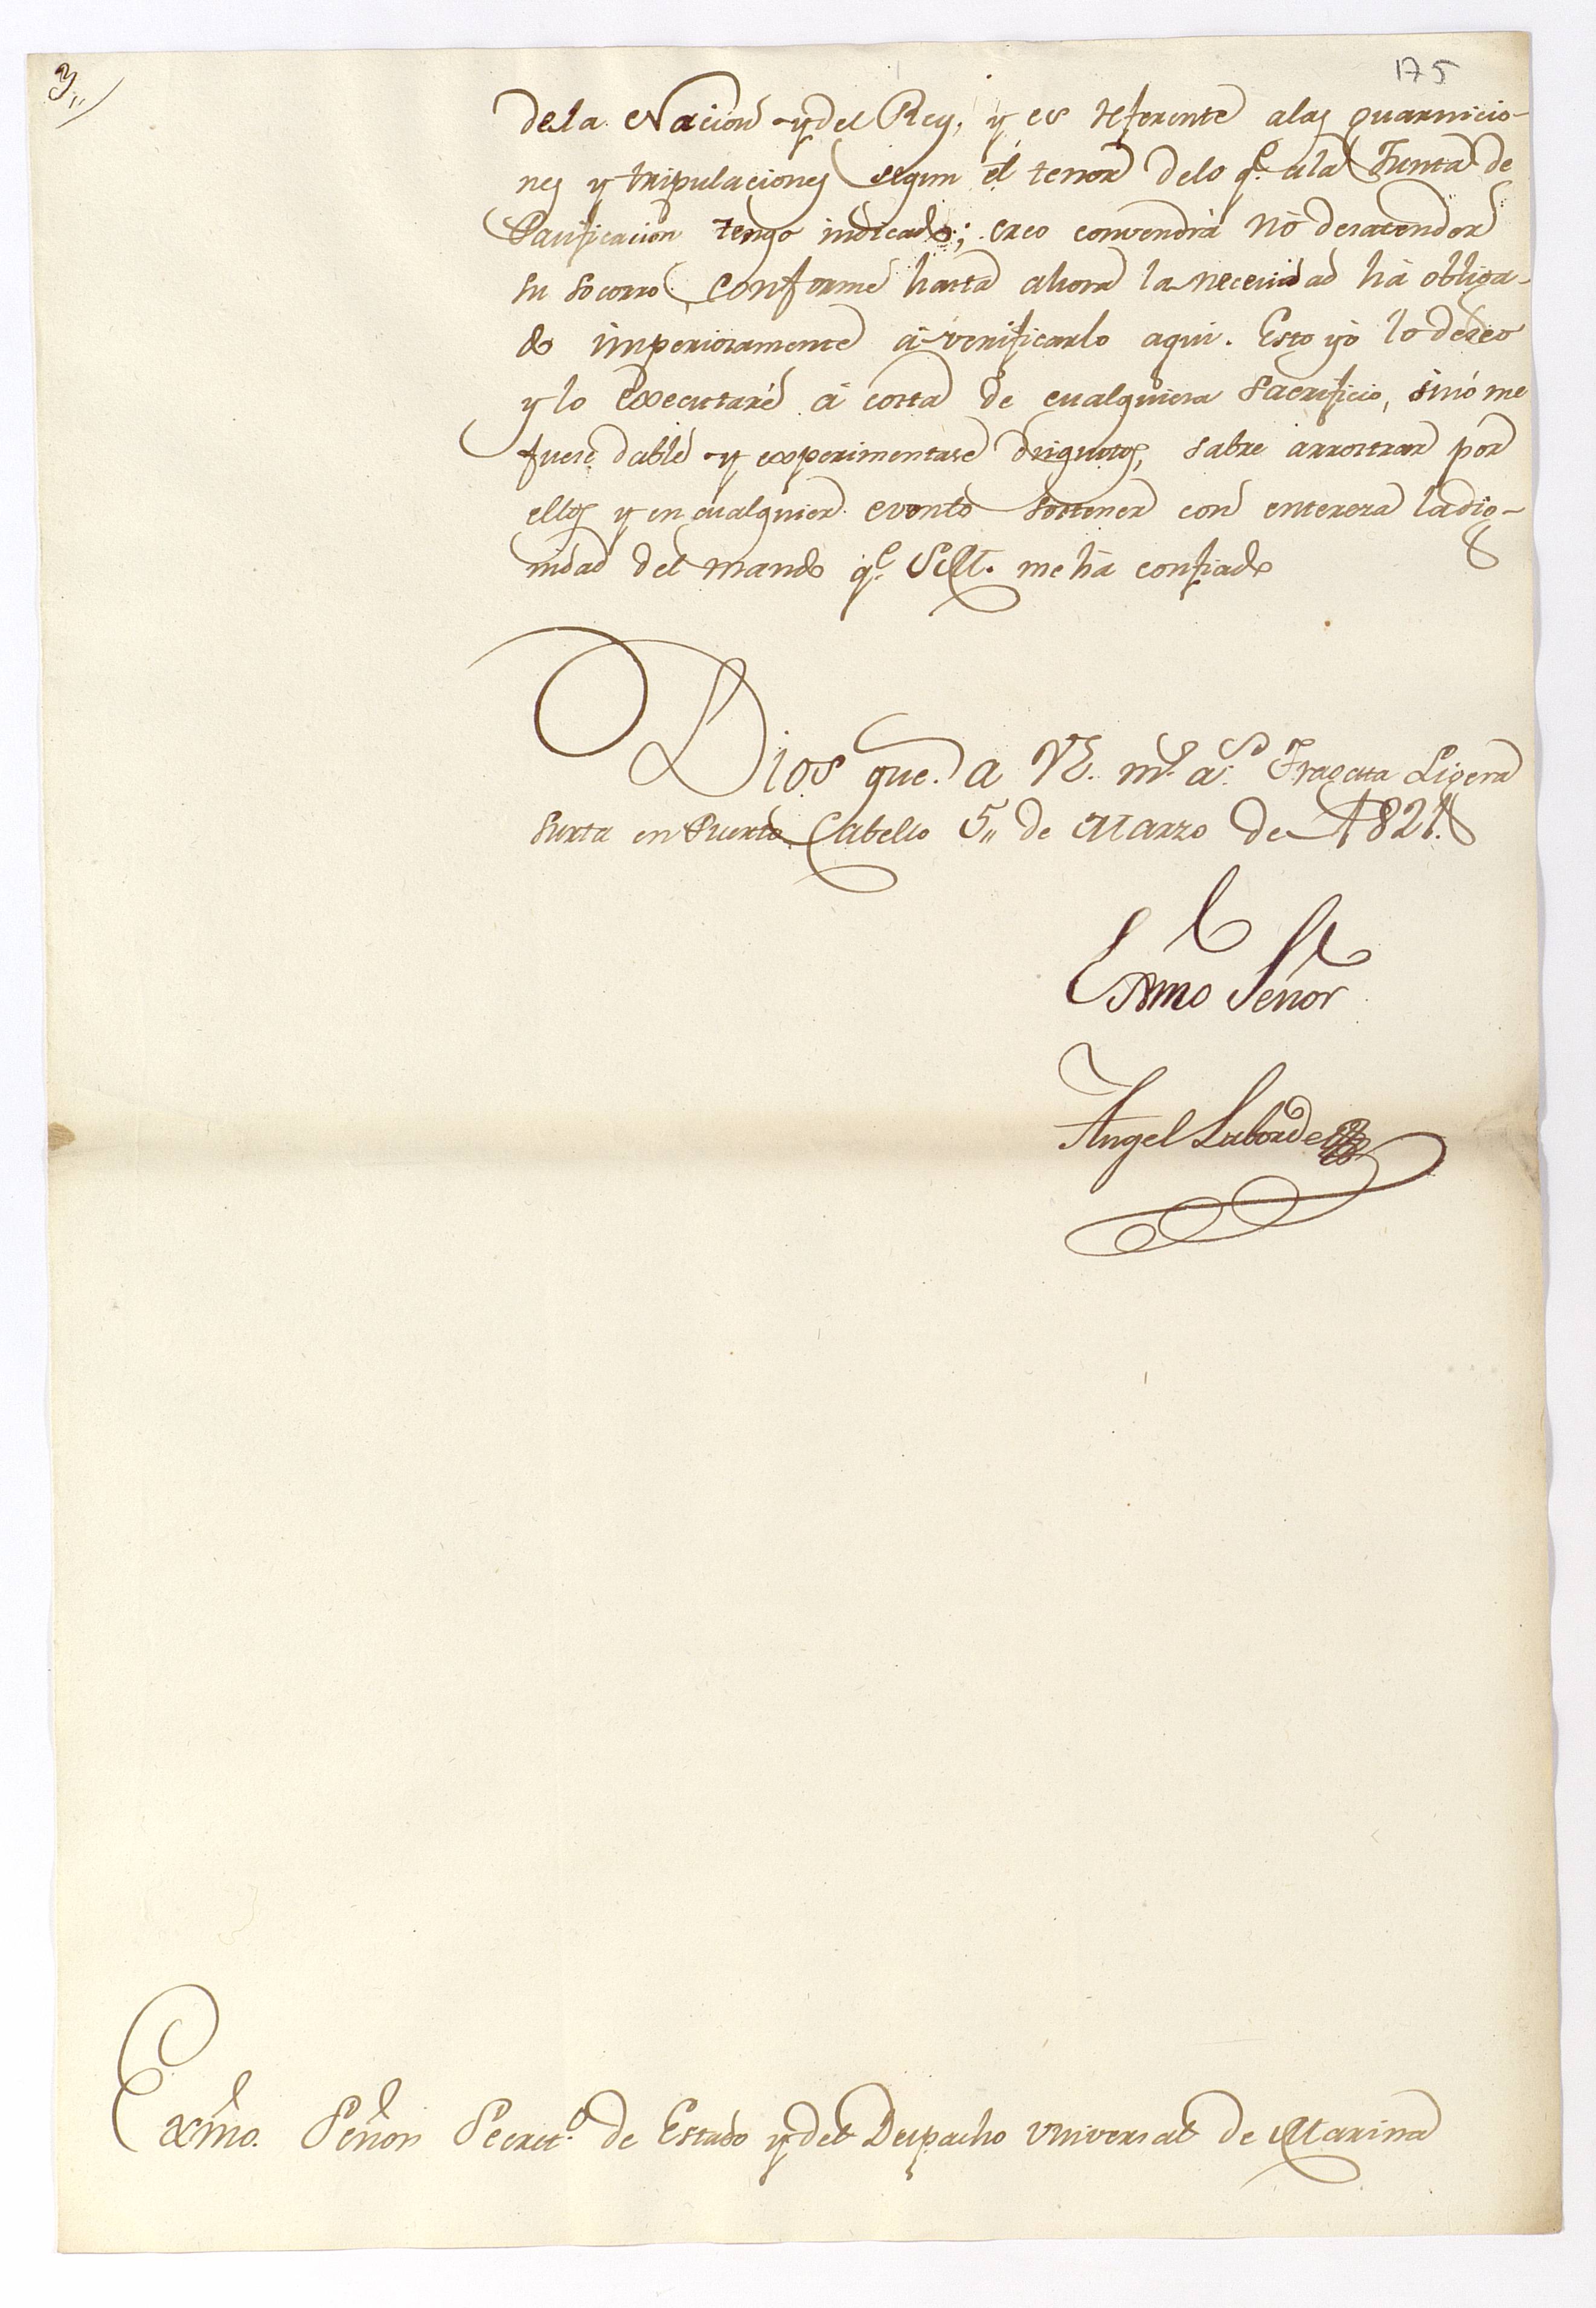 3,,
175
dela Nacion y del Rey, y es referente alas guarnicio-
nes y tripulaciones segun el tenor delo q.e ala Junta de
Pacificacion tengo indicado; creo convendrá nó desatender
su socorro conforme hasta ahora la necesidad há obliga-
do imperiosamente á verificarlo aqui. Esto yó lo deseo
y lo executaré á costa de cualquiera sacrificio, sinó me
fuese dable y experimentase disgustos, sabre arrostrar por
ellos y en cualquier evento sostener con entereza la dig-
nidad del mando q.e S.M. me há confiado
Dios gue. a VE. m.s a.s Fragata Ligera
surta en Puerto Cabello 5,, de Marzo de 1821.
Exmo Señor
Angel Laborde
Exmo. Señor Secret.o de Estado y del Despacho Universal de Marina